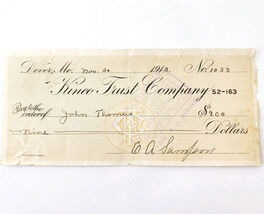 Dover, Me. Nov. 30 1912. No. 1033
Kineo Trust Company 52-163
Pay to the order of John Thomas $9.00
Nine Dollars
E A Sampson